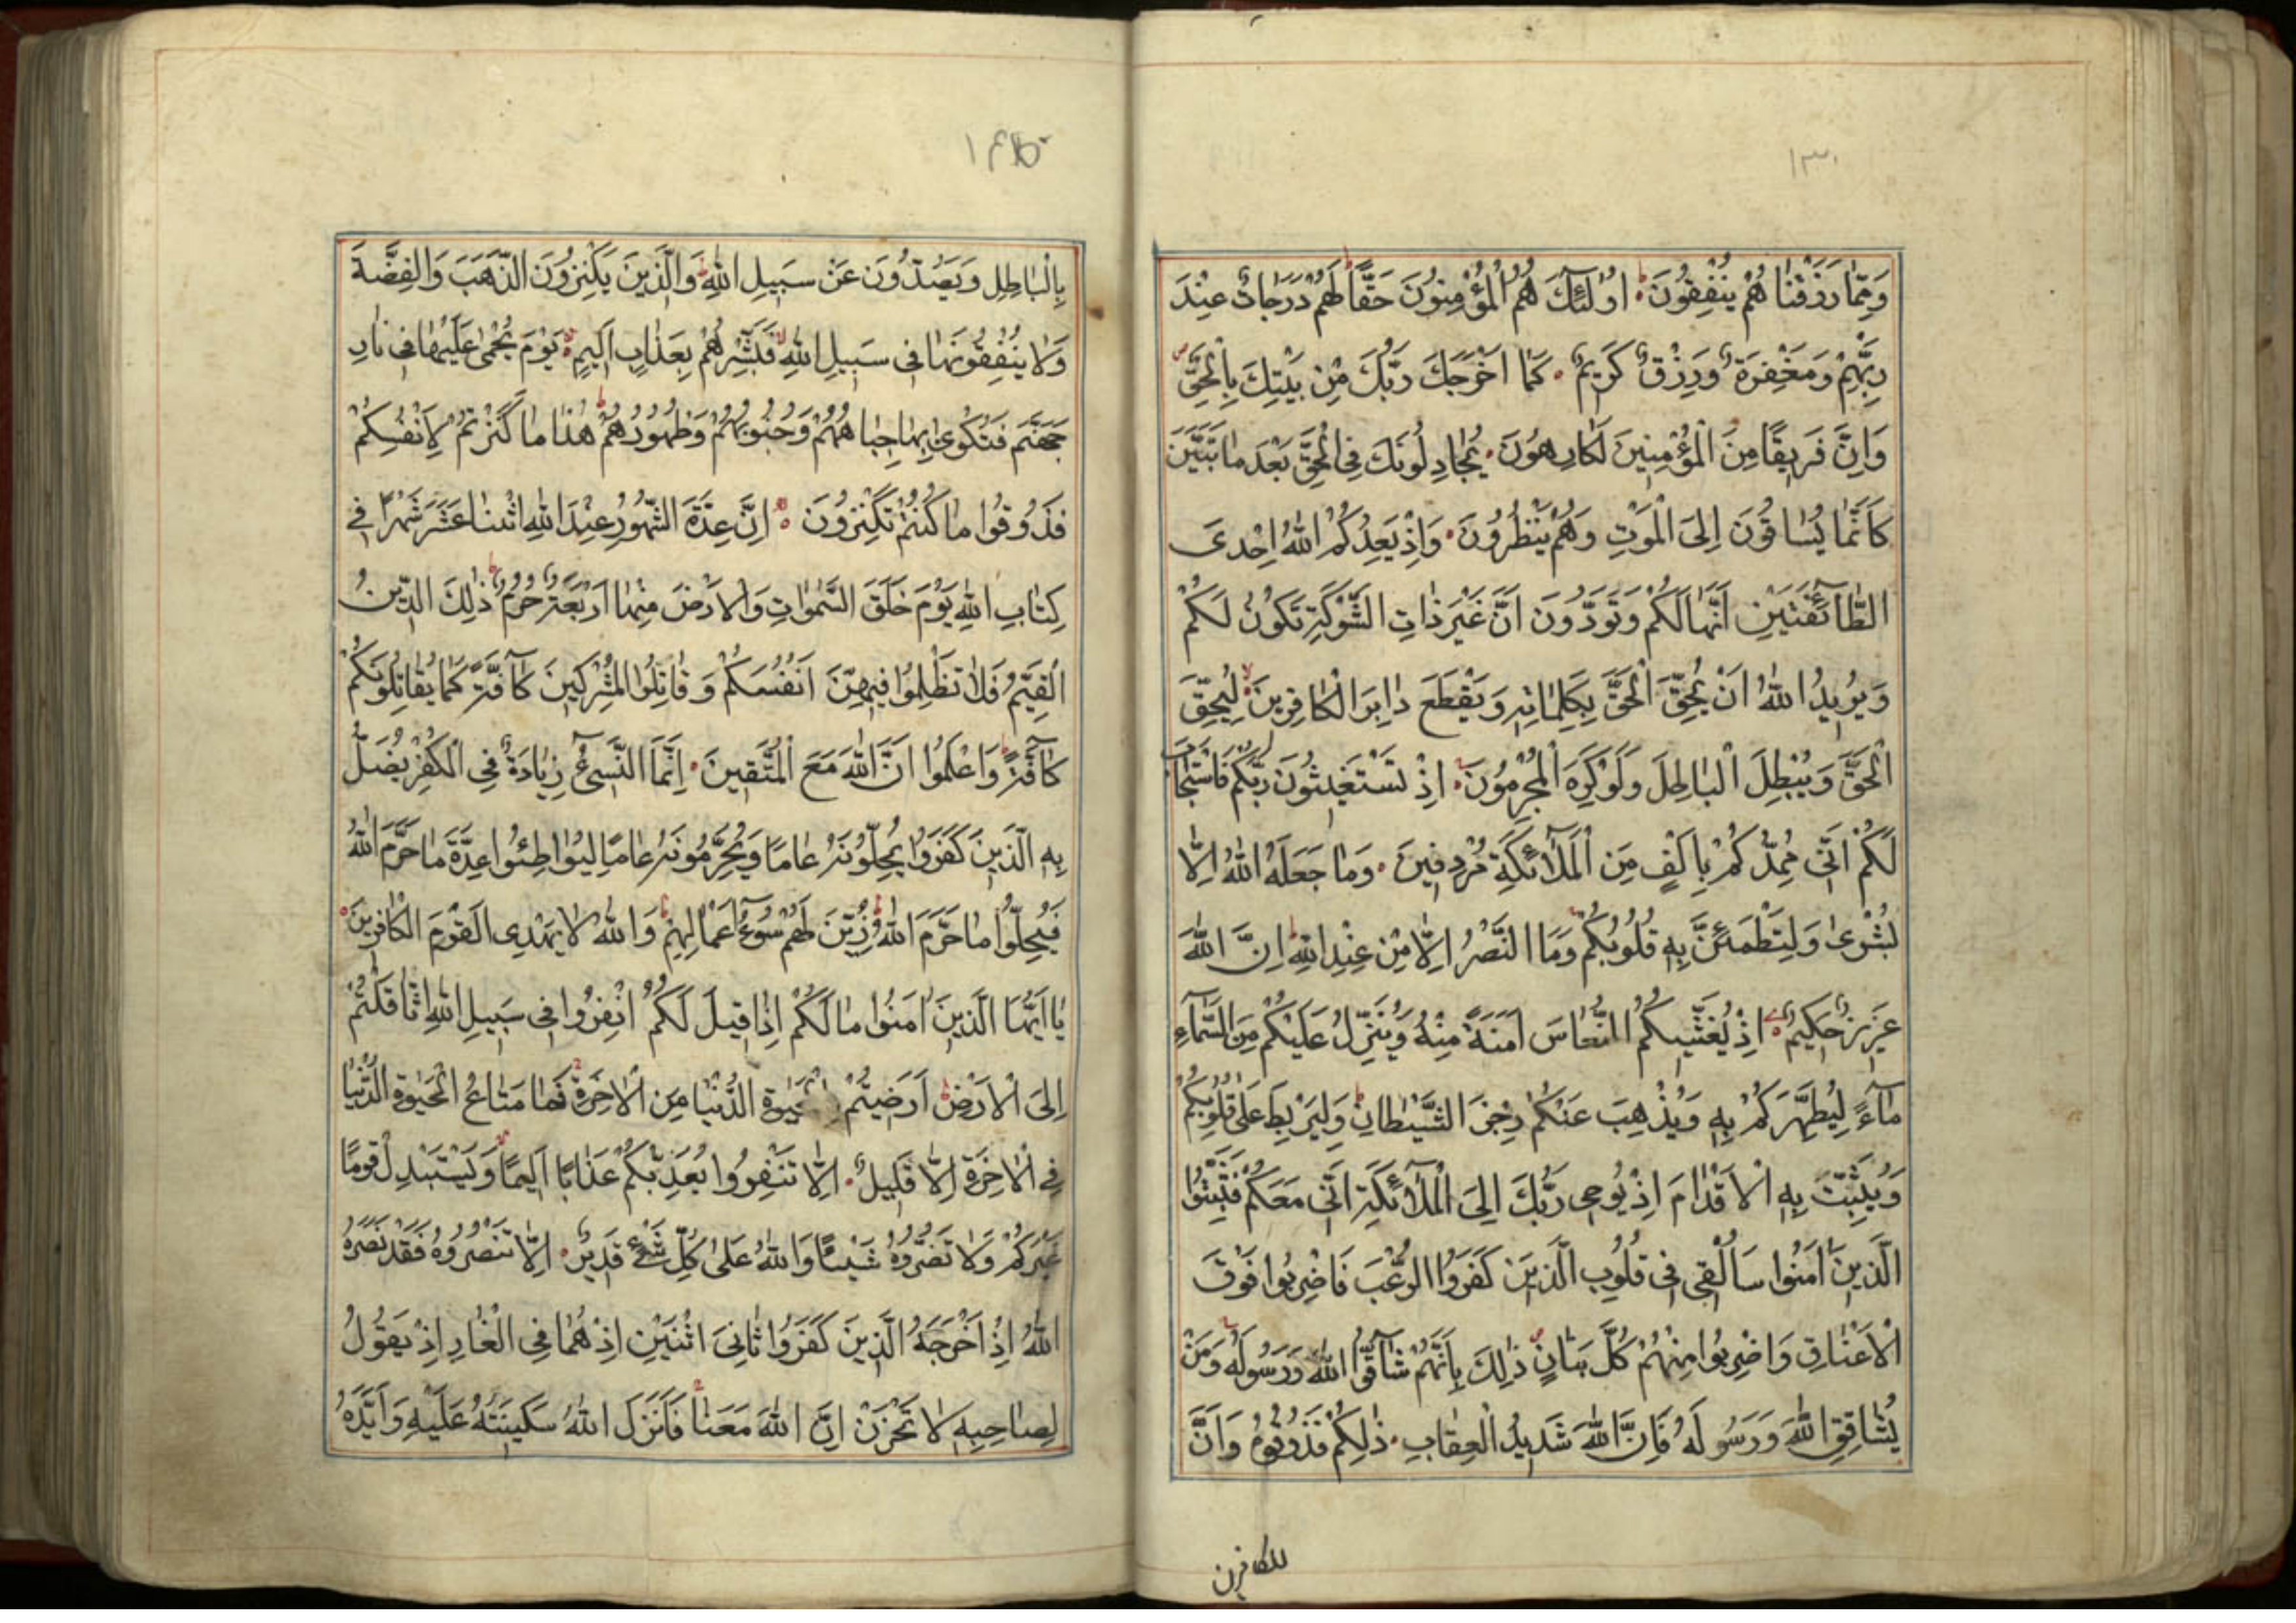 ١٣١
وَمِمَّا رَزَقْنَاهُمْ يُنْفِقُونَ اُولٰٓئِكَ هُمُ الْمُؤْمِنُونَ حَقًّا لَهُمْ دَرَجَاتٌ عِنْدَ
رَبِّهِمْ وَمَغْفِرَةٌ وَرِزْقٌ كَرِيمٌ كَمَا اَخْرَجَكَ رَبُّكَ مِنْ بَيْتِكَ بِالْحَقِّ
وَاِنَّ فَرِيقًا مِنَ الْمُؤْمِنِينَ لَكَارِهُونَ يُجَادِلُونَكَ فِي الْحَقِّ بَعْدَ مَا تَبَيَّنَ
كَاَنَّمَا يُسَاقُونَ اِلَى الْمَوْتِ وَهُمْ يَنْظُرُونَ وَاِذْ يَعِدُكُمُ اللّٰهُ اِحْدَى
الطَّآئِفَتَيْنِ اَنَّهَا لَكُمْ وَتَوَدُّونَ اَنَّ غَيْرَ ذَاتِ الشَّوْكَةِ تَكُونُ لَكُمْ
وَيُرِيدُ اللّٰهُ اَنْ يُحِقَّ الْحَقَّ بِكَلِمَاتِهِ وَيَقْطَعَ دَابِرَ الْكَافِرِينَ لِيُحِقَّ
الْحَقَّ وَيُبْطِلَ الْبَاطِلَ وَلَوْ كَرِهَ الْمُجْرِمُونَ اِذْ تَسْتَغِيثُونَ رَبَّكُمْ فَاسْتَجَابَ
لَكُمْ اَنِّي مُمِدُّكُمْ بِاَلْفٍ مِنَ الْمَلٰٓئِكَةِ مُرْدِفِينَ وَمَا جَعَلَهُ اللّٰهُ اِلَّا
بُشْرٰى وَلِتَطْمَئِنَّ بِهِ قُلُوبُكُمْ وَمَا النَّصْرُ اِلَّا مِنْ عِنْدِ اللّٰهِ اِنَّ اللّٰهَ
عَزِيزٌ حَكِيمٌ اِذْ يُغَشِّيكُمُ النُّعَاسَ اَمَنَةً مِنْهُ وَيُنَزِّلُ عَلَيْكُمْ مِنَ السَّمَآءِ
مَآءً لِيُطَهِّرَكُمْ بِهِ وَيُذْهِبَ عَنْكُمْ رِجْزَ الشَّيْطَانِ وَلِيَرْبِطَ عَلٰى قُلُوبِكُمْ
وَيُثَبِّتَ بِهِ الْاَقْدَامَ اِذْ يُوحِي رَبُّكَ اِلَى الْمَلٰٓئِكَةِ اَنِّي مَعَكُمْ فَثَبِّتُوا
الَّذِينَ اٰمَنُوا سَاُلْقِي فِي قُلُوبِ الَّذِينَ كَفَرُوا الرُّعْبَ فَاضْرِبُوا فَوْقَ
الْاَعْنَاقِ وَاضْرِبُوا مِنْهُمْ كُلَّ بَنَانٍ ذٰلِكَ بِاَنَّهُمْ شَآقُّوا اللّٰهَ وَرَسُولَهُ وَمَنْ
يُشَاقِقِ اللّٰهَ وَرَسُولَهُ فَاِنَّ اللّٰهَ شَدِيدُ الْعِقَابِ ذٰلِكُمْ فَذُوقُوهُ وَاَنَّ
للكافرين
بِالْبَاطِلِ وَيَصُدُّونَ عَنْ سَبِيلِ اللّٰهِ وَالَّذِينَ يَكْنِزُونَ الذَّهَبَ وَالْفِضَّةَ
وَلَا يُنْفِقُونَهَا فِي سَبِيلِ اللّٰهِ فَبَشِّرْهُمْ بِعَذَابٍ اَلِيمٍ يَوْمَ يُحْمٰى عَلَيْهَا فِي نَارِ
جَهَنَّمَ فَتُكْوٰى بِهَا جِبَاهُهُمْ وَجُنُوبُهُمْ وَظُهُورُهُمْ هٰذَا مَا كَنَزْتُمْ لِاَنْفُسِكُمْ
فَذُوقُوا مَا كُنْتُمْ تَكْنِزُونَ اِنَّ عِدَّةَ الشُّهُورِ عِنْدَ اللّٰهِ اثْنَا عَشَرَ شَهْرًا فِي
كِتَابِ اللّٰهِ يَوْمَ خَلَقَ السَّمٰوَاتِ وَالْاَرْضَ مِنْهَا اَرْبَعَةٌ حُرُمٌ ذٰلِكَ الدِّينُ
الْقَيِّمُ فَلَا تَظْلِمُوا فِيهِنَّ اَنْفُسَكُمْ وَقَاتِلُوا الْمُشْرِكِينَ كَآفَّةً كَمَا يُقَاتِلُونَكُمْ
كَآفَّةً وَاعْلَمُوا اَنَّ اللّٰهَ مَعَ الْمُتَّقِينَ اِنَّمَا النَّسِيٓءُ زِيَادَةٌ فِي الْكُفْرِ يُضَلُّ
بِهِ الَّذِينَ كَفَرُوا يُحِلُّونَهُ عَامًا وَيُحَرِّمُونَهُ عَامًا لِيُوَاطِئُوا عِدَّةَ مَا حَرَّمَ اللّٰهُ
فَيُحِلُّوا مَا حَرَّمَ اللّٰهُ زُيِّنَ لَهُمْ سُوٓءُ اَعْمَالِهِمْ وَاللّٰهُ لَا يَهْدِي الْقَوْمَ الْكَافِرِينَ
يَا اَيُّهَا الَّذِينَ اٰمَنُوا مَا لَكُمْ اِذَا قِيلَ لَكُمُ انْفِرُوا فِي سَبِيلِ اللّٰهِ اثَّاقَلْتُمْ
اِلَى الْاَرْضِ اَرَضِيتُمْ بِالْحَيٰوةِ الدُّنْيَا مِنَ الْاٰخِرَةِ فَمَا مَتَاعُ الْحَيٰوةِ الدُّنْيَا
فِي الْاٰخِرَةِ اِلَّا قَلِيلٌ اِلَّا تَنْفِرُوا يُعَذِّبْكُمْ عَذَابًا اَلِيمًا وَيَسْتَبْدِلْ قَوْمًا
غَيْرَكُمْ وَلَا تَضُرُّوهُ شَيْئًا وَاللّٰهُ عَلٰى كُلِّ شَيْءٍ قَدِيرٌ اِلَّا تَنْصُرُوهُ فَقَدْ نَصَرَهُ
اللّٰهُ اِذْ اَخْرَجَهُ الَّذِينَ كَفَرُوا ثَانِيَ اثْنَيْنِ اِذْ هُمَا فِي الْغَارِ اِذْ يَقُولُ
لِصَاحِبِهِ لَا تَحْزَنْ اِنَّ اللّٰهَ مَعَنَا فَاَنْزَلَ اللّٰهُ سَكِينَتَهُ عَلَيْهِ وَاَيَّدَهُ